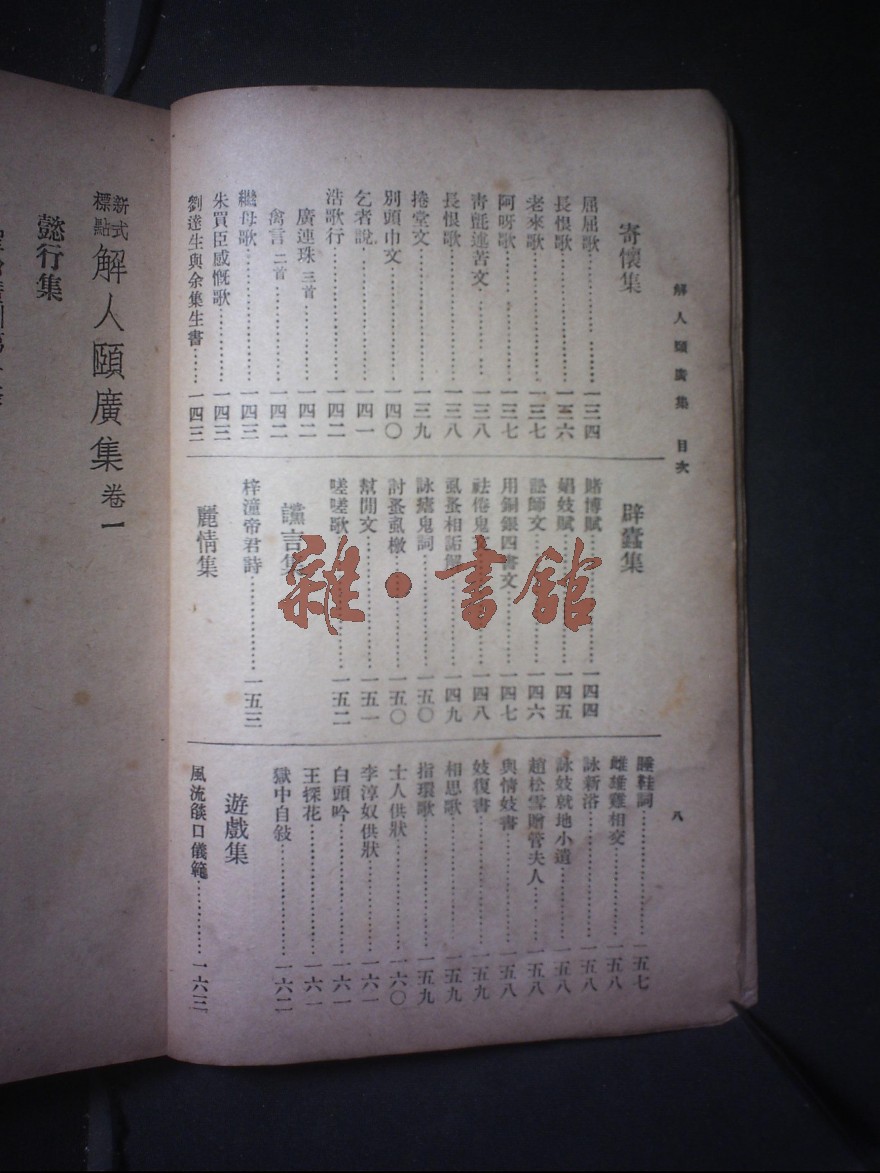 解人頤廣集 目次
八
寄懷集
屈屈歌……一三四
長恨歌……一三六
老來歌……一三七
阿呀歌……一三七
靑氈述苦文……一三八
長恨歌……一三八
捲堂文……一三九
別頭巾文……一四〇
乞者說……一四一
浩歌行……一四二
廣連珠 三首……一四二
禽言 二首……一四二
繼母歌……一四三
朱買臣感慨歌……一四三
劉達生與余集生書……一四三
辟蠹集
賭博賦……一四四
娼妓賦……一四五
訟師文……一四六
用銅銀四書文……一四七
祛倦鬼文……一四八
虱蚤相詬……一四九
詠瘧鬼詞……一五〇
討蚤虱檄……一五〇
幫閒文……一五一
嗟嗟歌……一五二
讜言集
梓潼帝君詩……一五三
麗情集
睡鞋詞……一五七
雌雄雞相交……一五八
詠新浴……一五八
詠妓就地小遺……一五八
趙松雪贈管夫人……一五八
與情妓書……一五八
妓復書……一五九
相思歌……一五九
指環歌……一五九
士人供狀……一六〇
李淳奴供狀……一六一
白頭吟……一六一
王探花……一六一
獄中自敍……一六二
遊戲集
風流燄口儀範……一六三
新式標點 解人頤廣集 卷一
懿行集
雜·書館